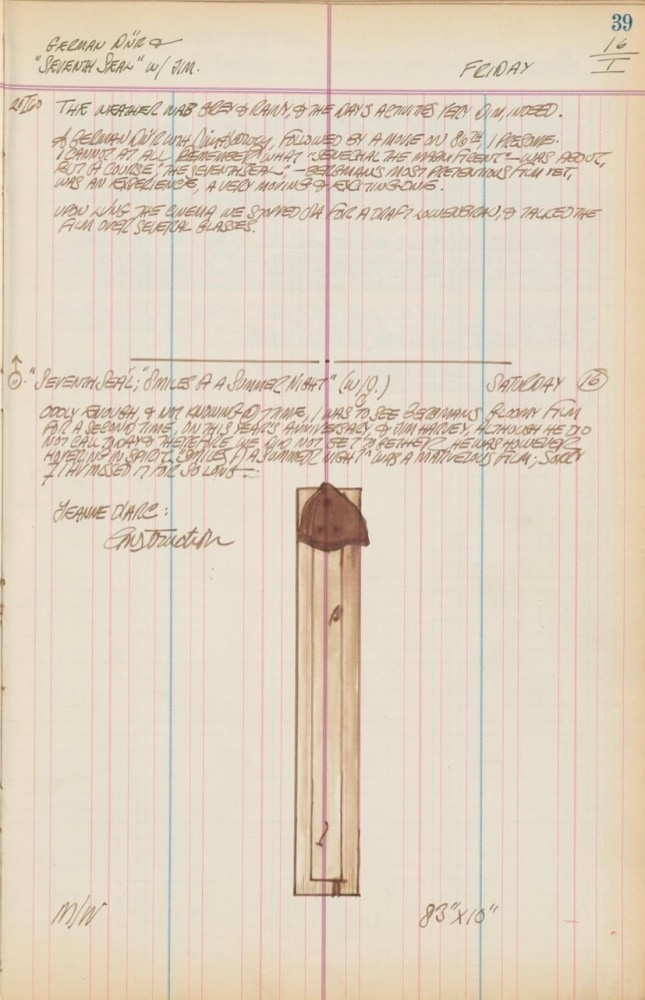 39
GERMAN DIN'R &
"SEVENTH SEAL" W/ JIM.
FRIDAY
16
I
THE WEATHER WAS GREY & RAINY, & THE DAYS ACTIVITIES VERY DIM, INDEED.
A GERMAN DIN'R WITH FOLLOWED BY A MOVIE ON 86TH, I PRESUME.
I CANNOT AT ALL REMEMBER WHAT "THE MAGNIFICENT"—WAS ABOUT,
BUT OF COURSE, "THE SEVENTH SEAL",—BERGMANS MOST PRETENTIOUS FILM YET,
WAS AN EXPERIENCE, A VERY MOVING & EXCITING ONE.
UPON LVING THE CINEMA WE STOPPED FOR A DRAFT LOWENBRAU, & TALKED THE
FILM OVER SEVERAL GLASSES.
"SEVENTH SEAL"; "SMILES OF A SUMMER NIGHT" (W/J.)
SATURDAY 16
ODDLY ENOUGH & NOT KNOWING TIME, I WAS TO SEE BERGMANS GLOOMY FILM
FOR A SECOND TIME, ON THIS YEAR'S ANNIVERSARY OF JIM HARVEY, ALTHOUGH HE DID
NOT CALL TODAY & THEREFORE WE DID NOT GET TOGETHER. HE WAS HOWEVER
HOVERING IN SPIRIT. "SMILES OF A SUMMER NIGHT" WAS A MARVELOUS FILM; SORRY
I HV MISSED IT FOR SO LONG—
JEANNE D'ARC:
Construction
M/W
83" X 10"